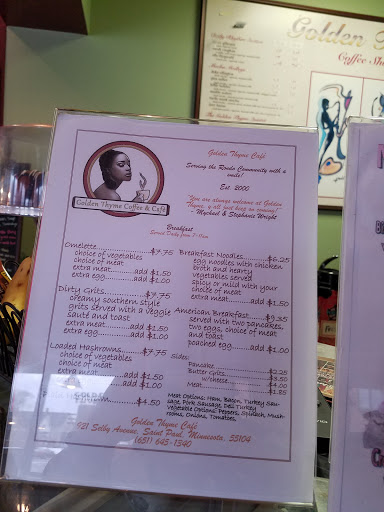 Golden
Coffee Sh
Golden Thyme Coffee & Café
Golden Thyme Café
Serving the Rondo Community with a
smile!
Est. 2000
"You are always welcome at Golden
Thyme, y'all just keep on coming!"
Mychael & Stephanie Wright
Breakfast
Served Daily from 7-11am
Omelette $7.75
choice of vegetables
choice of meat
extra meat add $1.50
extra egg add $1.00
Dirty Grits $7.75
creamy southern style
grits served with a veggie
sauté and toast
extra meat add $1.50
extra egg add $1.00
Loaded Hashrowns $7.75
choice of vegetables
choice of meat
extra meat add $1.50
add $1.00
$4.50
Breakfast Noodles $6.25
egg noodles with chicken
broth and hearty
vegetables served
spicy or mild with your
choice of meat
extra meat add $1.50
American Breakfast $9.35
served with two pancakes,
two eggs, choice of meat
and toast
poached egg add $1.00
Sides:
Pancake $2.25
Butter Grits
w/cheese $3.50
Meat $4.00
$1.85
Meat Options: Ham, Bacon, Turkey Sau-
sage, Pork Sausage, Deli Turkey
Vegetable Options: Peppers, Spinach, Mush-
rooms, Onions, Tomatoes,
Golden Thyme Café
921 Selby Avenue, Saint Paul, Minnesota, 55104
(651) 645-1340